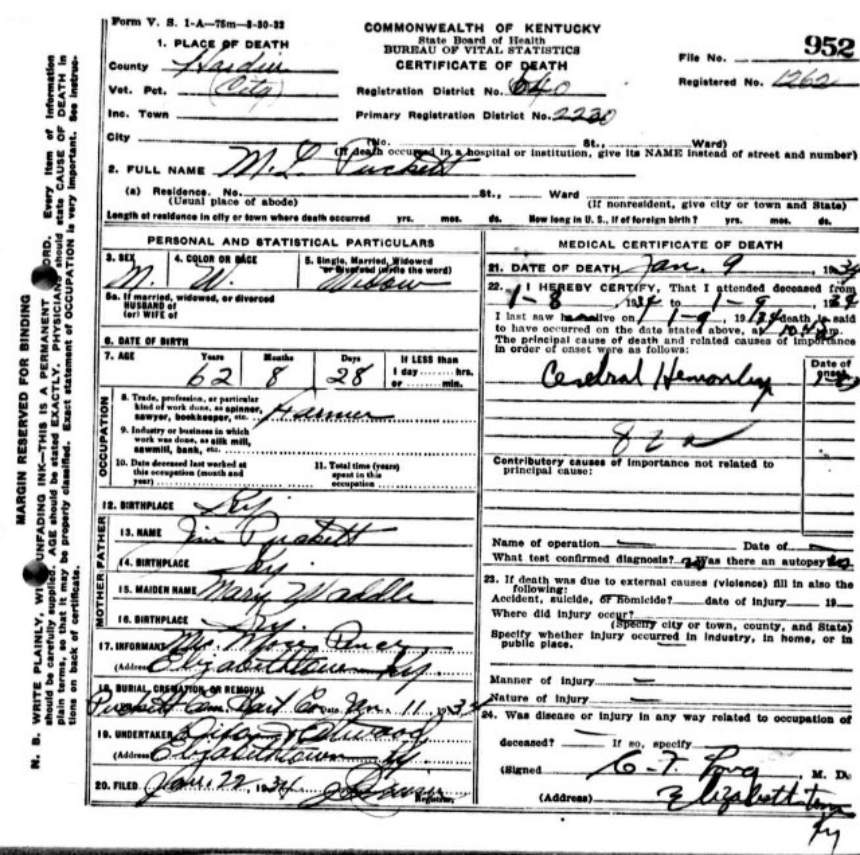 Form V. S. 1-A—75m—8-30-32
COMMONWEALTH OF KENTUCKY
State Board of Health
BUREAU OF VITAL STATISTICS
CERTIFICATE OF DEATH
952
File No.
Registered No. 1262
1. PLACE OF DEATH
County Hardin
Vot. Pct. (City)
Registration District No. 640
Inc. Town
Primary Registration District No. 2230
City
(No. St., Ward)
(If death occurred in a hospital or institution, give its NAME instead of street and number)
2. FULL NAME M. L. Puckett
(a) Residence. No. St., Ward
(Usual place of abode) (If nonresident, give city or town and State)
Length of residence in city or town where death occurred yrs. mos. ds. How long in U. S., if of foreign birth? yrs. mos. ds.
PERSONAL AND STATISTICAL PARTICULARS
3. SEX 4. COLOR OR RACE 5. Single, Married, Widowed or Divorced (write the word)
M. W. Widow
5a. If married, widowed, or divorced
HUSBAND of
(or) WIFE of
6. DATE OF BIRTH
7. AGE Years Months Days If LESS than
1 day hrs.
or min.
62 8 28
OCCUPATION
8. Trade, profession, or particular
kind of work done, as spinner,
sawyer, bookkeeper, etc. Farmer
9. Industry or business in which
work was done, as silk mill,
sawmill, bank, etc.
10. Date deceased last worked at
this occupation (month and
year)
11. Total time (years)
spent in this
occupation
12. BIRTHPLACE Ky
FATHER
13. NAME Jim Puckett
14. BIRTHPLACE Ky.
MOTHER
15. MAIDEN NAME Mary Waddle
16. BIRTHPLACE Ky.
17. INFORMANT Mrs.
(Address) Elizabethtown Ky
18. BURIAL, CREMATION OR REMOVAL
Puckett Cem. Co. Date Jan. 11, 1934
19. UNDERTAKER Atwood
(Address) Elizabethtown Ky
20. FILED Jan. 22, 1934
Registrar.
MEDICAL CERTIFICATE OF DEATH
21. DATE OF DEATH Jan. 9, 1934
22. I HEREBY CERTIFY, That I attended deceased from
1-8, 1934 to 1-9, 1934
I last saw h alive on 1-9, 1934 death is said
to have occurred on the date stated above, at m.
The principal cause of death and related causes of importance
in order of onset were as follows:
Date of
onset
Cerebral Hemorrhag
82a
Contributory causes of importance not related to
principal cause:
Name of operation Date of
What test confirmed diagnosis? Was there an autopsy
23. If death was due to external causes (violence) fill in also the
following:
Accident, suicide, or homicide? date of injury 19
Where did injury occur?
(Specify city or town, county, and State)
Specify whether injury occurred in industry, in home, or in
public place.
Manner of injury
Nature of injury
24. Was disease or injury in any way related to occupation of
deceased? If so, specify
(Signed C. F. Long, M. D.
(Address) Elizabethtown
Ky
MARGIN RESERVED FOR BINDING
N. B. WRITE PLAINLY, UNFADING INK—THIS IS A PERMANENT Every item of information
should be carefully supplied. AGE should be stated EXACTLY. should state CAUSE OF DEATH in
plain terms, so that it may be properly classified. Exact statement of OCCUPATION is very important. See instruc-
tions on back of certificate.